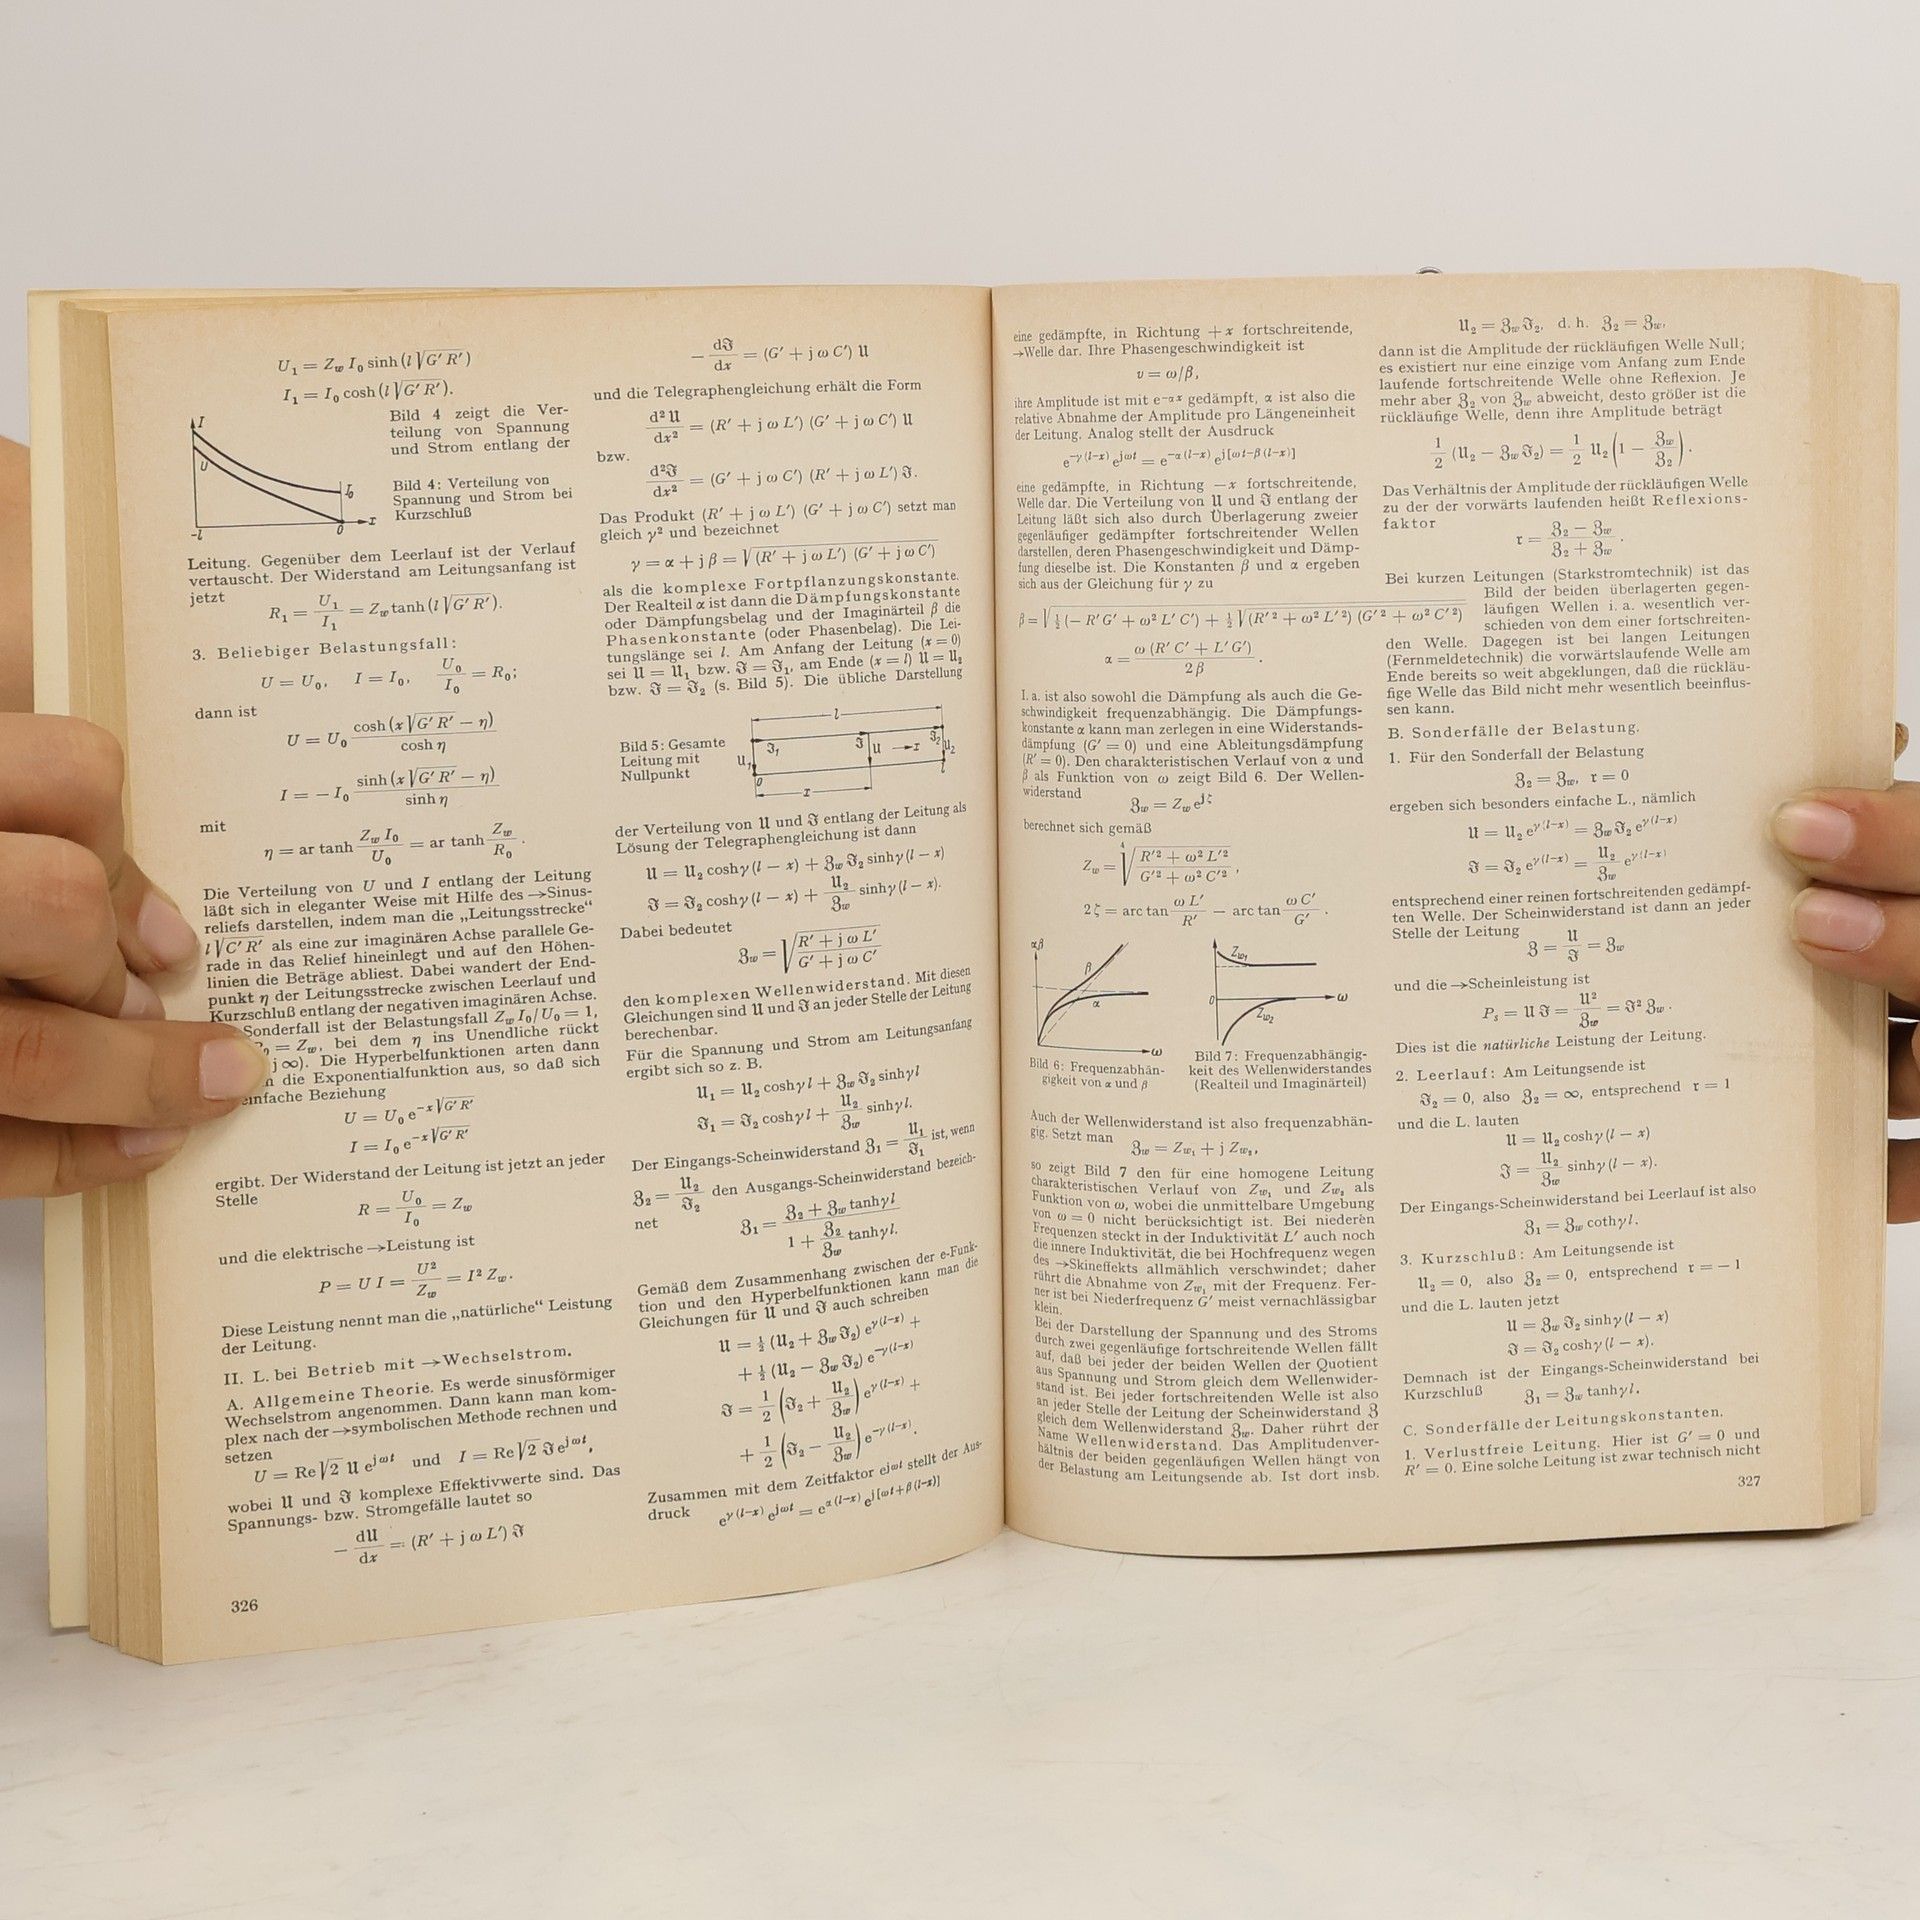 U₁ = Z_w I₀ sinh (l √G′ R′)
I₁ = I₀ cosh (l √G′ R′).
I
U
I₀
-l
0
x
Bild 4 zeigt die Ver-
teilung von Spannung
und Strom entlang der
Bild 4: Verteilung von
Spannung und Strom bei
Kurzschluß
Leitung. Gegenüber dem Leerlauf ist der Verlauf
vertauscht. Der Widerstand am Leitungsanfang ist
jetzt
R₁ = U₁/I₁ = Z_w tanh (l √G′ R′).
3. Beliebiger Belastungsfall:
U = U₀, I = I₀, U₀/I₀ = R₀;
dann ist
U = U₀ cosh (x √G′ R′ − η)/cosh η
I = − I₀ sinh (x √G′ R′ − η)/sinh η
mit
η = ar tanh Z_w I₀/U₀ = ar tanh Z_w/R₀.
Die Verteilung von U und I entlang der Leitung
läßt sich in eleganter Weise mit Hilfe des →Sinus-
reliefs darstellen, indem man die „Leitungsstrecke“
l √C′ R′ als eine zur imaginären Achse parallele Ge-
rade in das Relief hineinlegt und auf den Höhen-
linien die Beträge abliest. Dabei wandert der End-
punkt η der Leitungsstrecke zwischen Leerlauf und
Kurzschluß entlang der negativen imaginären Achse.
Sonderfall ist der Belastungsfall Z_w I₀/U₀ = 1,
= Z_w, bei dem η ins Unendliche rückt
j ∞). Die Hyperbelfunktionen arten dann
die Exponentialfunktion aus, so daß sich
einfache Beziehung
U = U₀ e^(−x √G′ R′)
I = I₀ e^(−x √G′ R′)
ergibt. Der Widerstand der Leitung ist jetzt an jeder
Stelle
R = U₀/I₀ = Z_w
und die elektrische →Leistung ist
P = U I = U²/Z_w = I² Z_w.
Diese Leistung nennt man die „natürliche“ Leistung
der Leitung.
II. L. bei Betrieb mit →Wechselstrom.
A. Allgemeine Theorie. Es werde sinusförmiger
Wechselstrom angenommen. Dann kann man kom-
plex nach der →symbolischen Methode rechnen und
setzen
U = Re √2 𝔘 e^(jωt) und I = Re √2 ℑ e^(jωt),
wobei 𝔘 und ℑ komplexe Effektivwerte sind. Das
Spannungs- bzw. Stromgefälle lautet so
− d𝔘/dx = (R′ + j ω L′) ℑ
326
− dℑ/dx = (G′ + j ω C′) 𝔘
und die Telegraphengleichung erhält die Form
d²𝔘/dx² = (R′ + j ω L′) (G′ + j ω C′) 𝔘
bzw.
d²ℑ/dx² = (G′ + j ω C′) (R′ + j ω L′) ℑ.
Das Produkt (R′ + j ω L′) (G′ + j ω C′) setzt man
gleich γ² und bezeichnet
γ = α + j β = √(R′ + j ω L′) (G′ + j ω C′)
als die komplexe Fortpflanzungskonstante.
Der Realteil α ist dann die Dämpfungskonstante
oder Dämpfungsbelag und der Imaginärteil β die
Phasenkonstante (oder Phasenbelag). Die Lei-
tungslänge sei l. Am Anfang der Leitung (x = 0)
sei 𝔘 = 𝔘₁ bzw. ℑ = ℑ₁, am Ende (x = l) 𝔘 = 𝔘₂
bzw. ℑ = ℑ₂ (s. Bild 5). Die übliche Darstellung
Bild 5: Gesamte
Leitung mit
Nullpunkt
l
ℑ₁ ℑ ℑ₂
𝔘₁ 𝔘 →x 𝔘₂
0 l
x
der Verteilung von 𝔘 und ℑ entlang der Leitung als
Lösung der Telegraphengleichung ist dann
𝔘 = 𝔘₂ cosh γ (l − x) + ℨ_w ℑ₂ sinh γ (l − x)
ℑ = ℑ₂ cosh γ (l − x) + 𝔘₂/ℨ_w sinh γ (l − x).
Dabei bedeutet
ℨ_w = √((R′ + j ω L′)/(G′ + j ω C′))
den komplexen Wellenwiderstand. Mit diesen
Gleichungen sind 𝔘 und ℑ an jeder Stelle der Leitung
berechenbar.
Für die Spannung und Strom am Leitungsanfang
ergibt sich so z. B.
𝔘₁ = 𝔘₂ cosh γ l + ℨ_w ℑ₂ sinh γ l
ℑ₁ = ℑ₂ cosh γ l + 𝔘₂/ℨ_w sinh γ l.
Der Eingangs-Scheinwiderstand ℨ₁ = 𝔘₁/ℑ₁ ist, wenn
ℨ₂ = 𝔘₂/ℑ₂ den Ausgangs-Scheinwiderstand bezeich-
net
ℨ₁ = (ℨ₂ + ℨ_w tanh γ l)/(1 + ℨ₂/ℨ_w tanh γ l.)
Gemäß dem Zusammenhang zwischen der e-Funk-
tion und den Hyperbelfunktionen kann man die
Gleichungen für 𝔘 und ℑ auch schreiben
𝔘 = ½ (𝔘₂ + ℨ_w ℑ₂) e^(γ(l−x)) +
+ ½ (𝔘₂ − ℨ_w ℑ₂) e^(−γ(l−x))
ℑ = 1/2 (ℑ₂ + 𝔘₂/ℨ_w) e^(γ(l−x)) +
+ 1/2 (ℑ₂ − 𝔘₂/ℨ_w) e^(−γ(l−x)).
Zusammen mit dem Zeitfaktor e^(jωt) stellt der Aus-
druck e^(γ(l−x)) e^(jωt) = e^(α(l−x)) e^(j[ωt+β(l−x)])
eine gedämpfte, in Richtung +x fortschreitende,
→Welle dar. Ihre Phasengeschwindigkeit ist
v = ω/β,
ihre Amplitude ist mit e^(−αx) gedämpft, α ist also die
relative Abnahme der Amplitude pro Längeneinheit
der Leitung. Analog stellt der Ausdruck
e^(−γ(l−x)) e^(jωt) = e^(−α(l−x)) e^(j[ωt−β(l−x)])
eine gedämpfte, in Richtung −x fortschreitende,
Welle dar. Die Verteilung von 𝔘 und ℑ entlang der
Leitung läßt sich also durch Überlagerung zweier
gegenläufiger gedämpfter fortschreitender Wellen
darstellen, deren Phasengeschwindigkeit und Dämp-
fung dieselbe ist. Die Konstanten β und α ergeben
sich aus der Gleichung für γ zu
β = √(½ (− R′ G′ + ω² L′ C′) + ½ √((R′² + ω² L′²) (G′² + ω² C′²)))
α = ω (R′ C′ + L′ G′)/2 β.
I. a. ist also sowohl die Dämpfung als auch die Ge-
schwindigkeit frequenzabhängig. Die Dämpfungs-
konstante α kann man zerlegen in eine Widerstands-
dämpfung (G′ = 0) und eine Ableitungsdämpfung
(R′ = 0). Den charakteristischen Verlauf von α und
β als Funktion von ω zeigt Bild 6. Der Wellen-
widerstand
ℨ_w = Z_w e^(jζ)
berechnet sich gemäß
Z_w = ⁴√((R′² + ω² L′²)/(G′² + ω² C′²)),
2 ζ = arc tan ω L′/R′ − arc tan ω C′/G′.
αβ
β
α
ω
Bild 6: Frequenzabhän-
gigkeit von α und β
Z_w₁
0
ω
Z_w₂
Bild 7: Frequenzabhängig-
keit des Wellenwiderstandes
(Realteil und Imaginärteil)
Auch der Wellenwiderstand ist also frequenzabhän-
gig. Setzt man
ℨ_w = Z_w₁ + j Z_w₂,
so zeigt Bild 7 den für eine homogene Leitung
charakteristischen Verlauf von Z_w₁ und Z_w₂ als
Funktion von ω, wobei die unmittelbare Umgebung
von ω = 0 nicht berücksichtigt ist. Bei niederen
Frequenzen steckt in der Induktivität L′ auch noch
die innere Induktivität, die bei Hochfrequenz wegen
des →Skineffekts allmählich verschwindet; daher
rührt die Abnahme von Z_w₁ mit der Frequenz. Fer-
ner ist bei Niederfrequenz G′ meist vernachlässigbar
klein.
Bei der Darstellung der Spannung und des Stroms
durch zwei gegenläufige fortschreitende Wellen fällt
auf, daß bei jeder der beiden Wellen der Quotient
aus Spannung und Strom gleich dem Wellenwider-
stand ist. Bei jeder fortschreitenden Welle ist also
an jeder Stelle der Leitung der Scheinwiderstand ℨ
gleich dem Wellenwiderstand ℨ_w. Daher rührt der
Name Wellenwiderstand. Das Amplitudenver-
hältnis der beiden gegenläufigen Wellen hängt von
der Belastung am Leitungsende ab. Ist dort insb.
𝔘₂ = ℨ_w ℑ₂, d. h. ℨ₂ = ℨ_w,
dann ist die Amplitude der rückläufigen Welle Null;
es existiert nur eine einzige vom Anfang zum Ende
laufende fortschreitende Welle ohne Reflexion. Je
mehr aber ℨ₂ von ℨ_w abweicht, desto größer ist die
rückläufige Welle, denn ihre Amplitude beträgt
1/2 (𝔘₂ − ℨ_w ℑ₂) = 1/2 𝔘₂ (1 − ℨ_w/ℨ₂).
Das Verhältnis der Amplitude der rückläufigen Welle
zu der der vorwärts laufenden heißt Reflexions-
faktor
𝔯 = (ℨ₂ − ℨ_w)/(ℨ₂ + ℨ_w).
Bei kurzen Leitungen (Starkstromtechnik) ist das
Bild der beiden überlagerten gegen-
läufigen Wellen i. a. wesentlich ver-
schieden von dem einer fortschreiten-
den Welle. Dagegen ist bei langen Leitungen
(Fernmeldetechnik) die vorwärtslaufende Welle am
Ende bereits so weit abgeklungen, daß die rückläu-
fige Welle das Bild nicht mehr wesentlich beeinflus-
sen kann.
B. Sonderfälle der Belastung.
1. Für den Sonderfall der Belastung
ℨ₂ = ℨ_w, 𝔯 = 0
ergeben sich besonders einfache L., nämlich
𝔘 = 𝔘₂ e^(γ(l−x)) = ℨ_w ℑ₂ e^(γ(l−x))
ℑ = ℑ₂ e^(γ(l−x)) = 𝔘₂/ℨ_w e^(γ(l−x))
entsprechend einer reinen fortschreitenden gedämpf-
ten Welle. Der Scheinwiderstand ist dann an jeder
Stelle der Leitung
ℨ = 𝔘/ℑ = ℨ_w
und die →Scheinleistung ist
P_s = 𝔘 ℑ = 𝔘²/ℨ_w = ℑ² ℨ_w.
Dies ist die natürliche Leistung der Leitung.
2. Leerlauf: Am Leitungsende ist
ℑ₂ = 0, also ℨ₂ = ∞, entsprechend 𝔯 = 1
und die L. lauten
𝔘 = 𝔘₂ cosh γ (l − x)
ℑ = 𝔘₂/ℨ_w sinh γ (l − x).
Der Eingangs-Scheinwiderstand bei Leerlauf ist also
ℨ₁ = ℨ_w coth γ l.
3. Kurzschluß: Am Leitungsende ist
𝔘₂ = 0, also ℨ₂ = 0, entsprechend 𝔯 = − 1
und die L. lauten jetzt
𝔘 = ℨ_w ℑ₂ sinh γ (l − x)
ℑ = ℑ₂ cosh γ (l − x).
Demnach ist der Eingangs-Scheinwiderstand bei
Kurzschluß ℨ₁ = ℨ_w tanh γ l.
C. Sonderfälle der Leitungskonstanten.
1. Verlustfreie Leitung. Hier ist G′ = 0 und
R′ = 0. Eine solche Leitung ist zwar technisch nicht
327